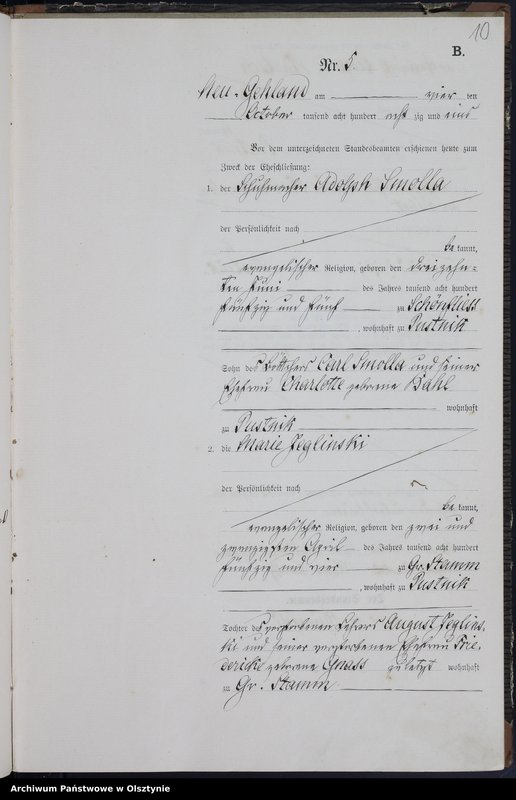 10
B.
Nr. 5
Neu-Gehland am vier ten
October tausend acht hundert acht zig und eins
Vor dem unterzeichneten Standesbeamten erschienen heute zum
Zweck der Eheschließung:
1. der Schuhmacher Adolph Smolla
der Persönlichkeit nach
be kannt,
evangelischer Religion, geboren den dreizehn-
ten Juni des Jahres tausend acht hundert
fünfzig und fünf zu Schönfließ
, wohnhaft zu Pustnik
Sohn des Böttchers Carl Smolla und seiner
Ehefrau Charlotte geborene Dahl
wohnhaft
zu Pustnik
2. die Marie Jeglinski
der Persönlichkeit nach
be kannt,
evangelischer Religion, geboren den zwei und
zwanzigsten April des Jahres tausend acht hundert
fünfzig und vier zu Gr. Stamm
, wohnhaft zu Pustnik
Tochter des verstorbenen August Jeglins-
ki und seiner verstorbenen Ehefrau Frie-
dericke geborene Gnass zuletzt wohnhaft
zu Gr. Stamm
Archiwum Państwowe w Olsztynie